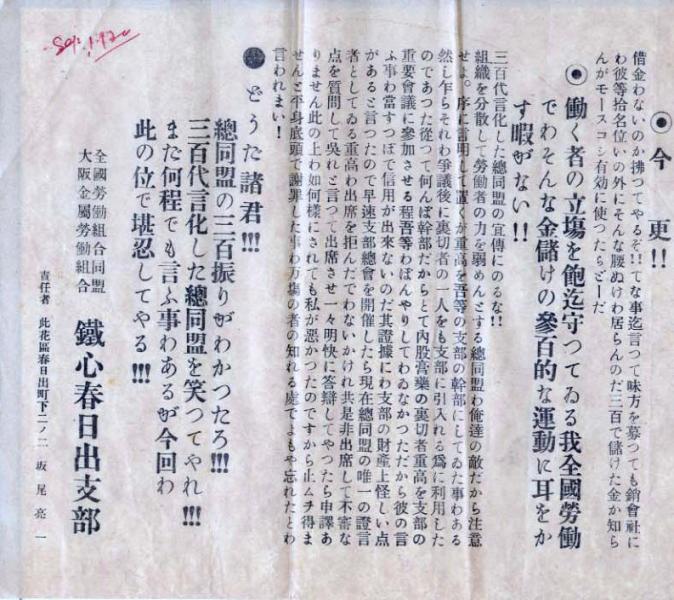 ◉今更!!
借金わないのか拂つてやるぞ!!てな事迄言つて味方を募つても銷會社に
わ彼等拾名位いの外にそんな腰ぬけわ居らんのだ三百で儲けた金か知ら
んがモースコシ有効に使つたらどーだ
◉働く者の立塲を飽迄守つてゐる我全國勞働
でわそんな金儲けの參百的な運動に耳をか
す暇がない!!
三百代言化した總同盟の宣傳にのるな!!
組織を分散して勞働者の力を弱めんとする總同盟わ俺達の敵だから注意
せよ。序に言明して置くが重高を吾等の支部の幹部にしてゐた事わある
然し乍らそれわ爭議後に裏切者の一人をも支部に引入れる爲に利用した
のであつた從つて何んぼ幹部だからとて內股膏藥の裏切者重高を支部の
重要會議に參加させる程吾等わぼんやりしてわゐなかつただから彼の言
ふ事わ當すつぽで信用が出來ないのだ其證據にわ支部の財產上怪しい点
があると言つたので早速支部總會を開催したら現在總同盟の唯一の證言
者としてゐる重高わ出席を拒んだでわないかけれ共是非出席して不審な
点を質問して吳れと言つて出席させ一々明快に答辯してやつたら申譯あ
りません此の上わ如何樣にされても私が惡かつたのですから止ムヲ得ま
せんと平身底頭で謝罪した事わ万塲の者の知れる處でよもや忘れたとわ
言われまい!
● どうた諸君!!!
總同盟の三百振りがわかつたろ!!!
三百代言化した總同盟を笑つてやれ!!!
また何程でも言ふ事わあるが今回わ
此の位で堪忍してやる!!!
全國勞働組合同盟
大阪金屬勞働組合
鐵心春日出支部
責任者 此花區春日出町下二ノ二 坂尾亮一